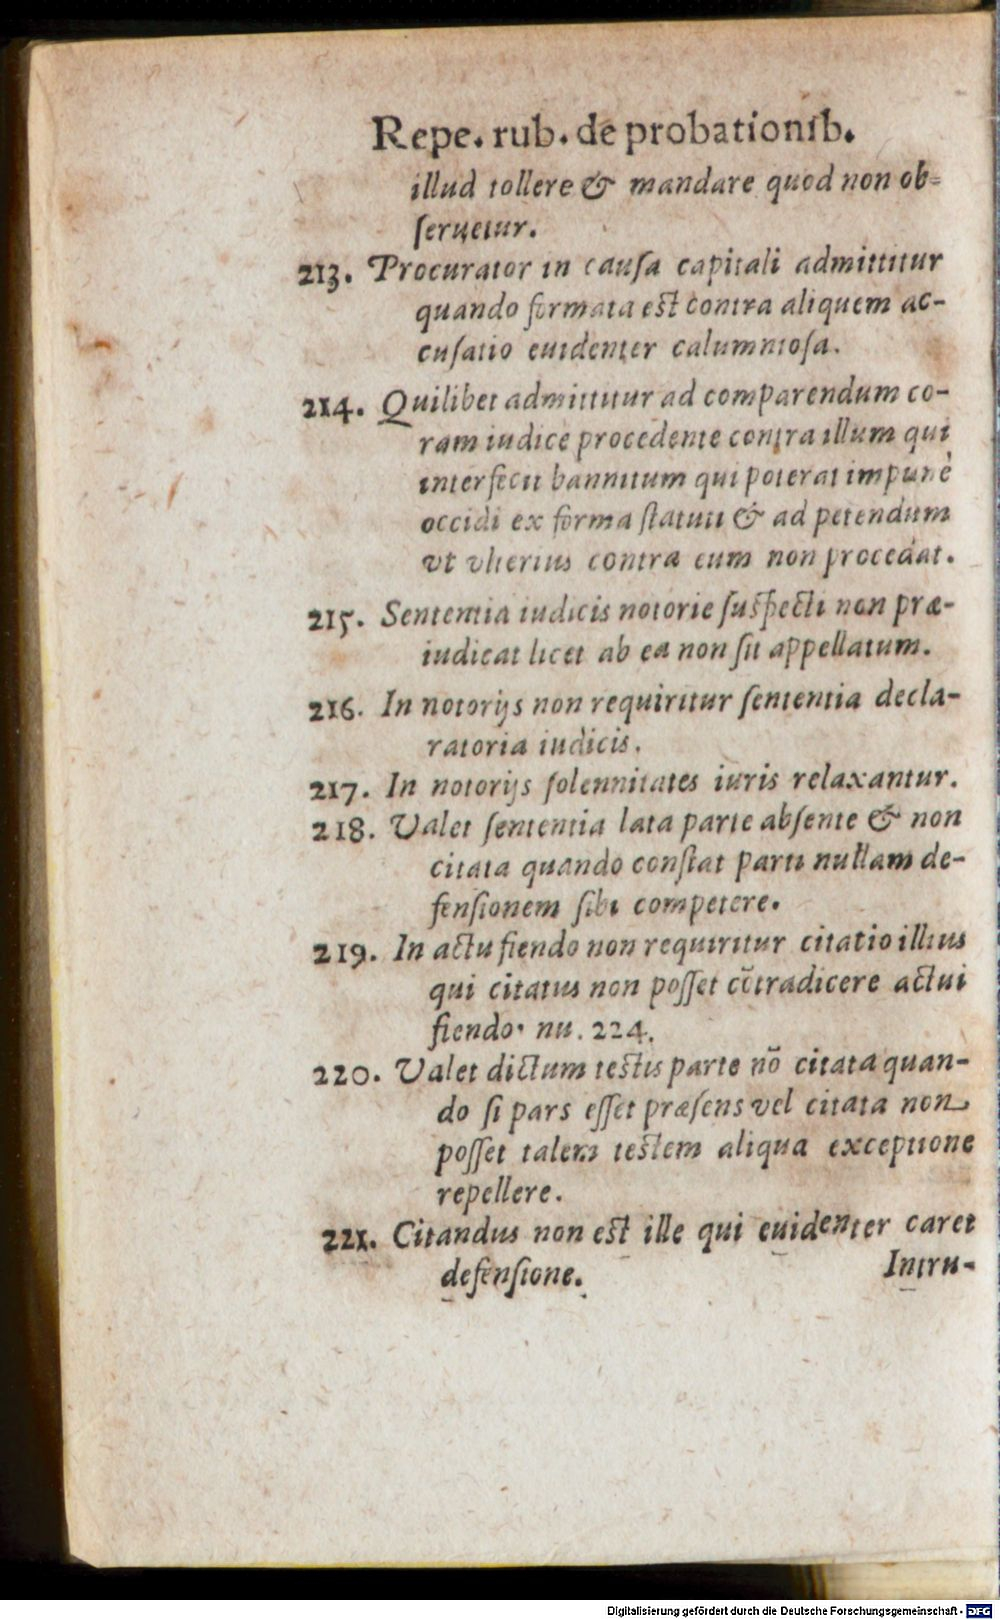 Repe. rub. de probationib.
illud tollere & mandare quod non ob=
ſeruetur.
213. Procurator in cauſa capitali admittitur
quando formata est contra aliquem ac-
cuſatio euidenter calumnioſa.
214. Quilibet admittitur ad comparendum co-
ram iudice procedente contra illum qui
interfecit bannitum qui poterat impunè
occidi ex forma ſtatuti & ad petendum
vt vlterius contra eum non procedat.
215. Sententia iudicis notorie ſuſpecti non præ-
iudicat licet ab ea non ſit appellatum.
216. In notorijs non requiritur ſententia decla-
ratoria iudicis.
217. In notorijs ſolennitates iuris relaxantur.
218. Valet ſententia lata parte abſente & non
citata quando conſtat parti nullam de-
fenſionem ſibi competere.
219. In actu fiendo non requiritur citatio illius
qui citatus non poſſet cōtradicere actui
fiendo· nu. 224.
220. Valet dictum testis parte nō citata quan-
do ſi pars eſſet præſens vel citata non
poſſet talem testem aliqua exceptione
repellere.
221. Citandus non est ille qui euidenter caret
defenſione.
Intru-
Digitalisierung gefördert durch die Deutsche Forschungsgemeinschaft - DFG